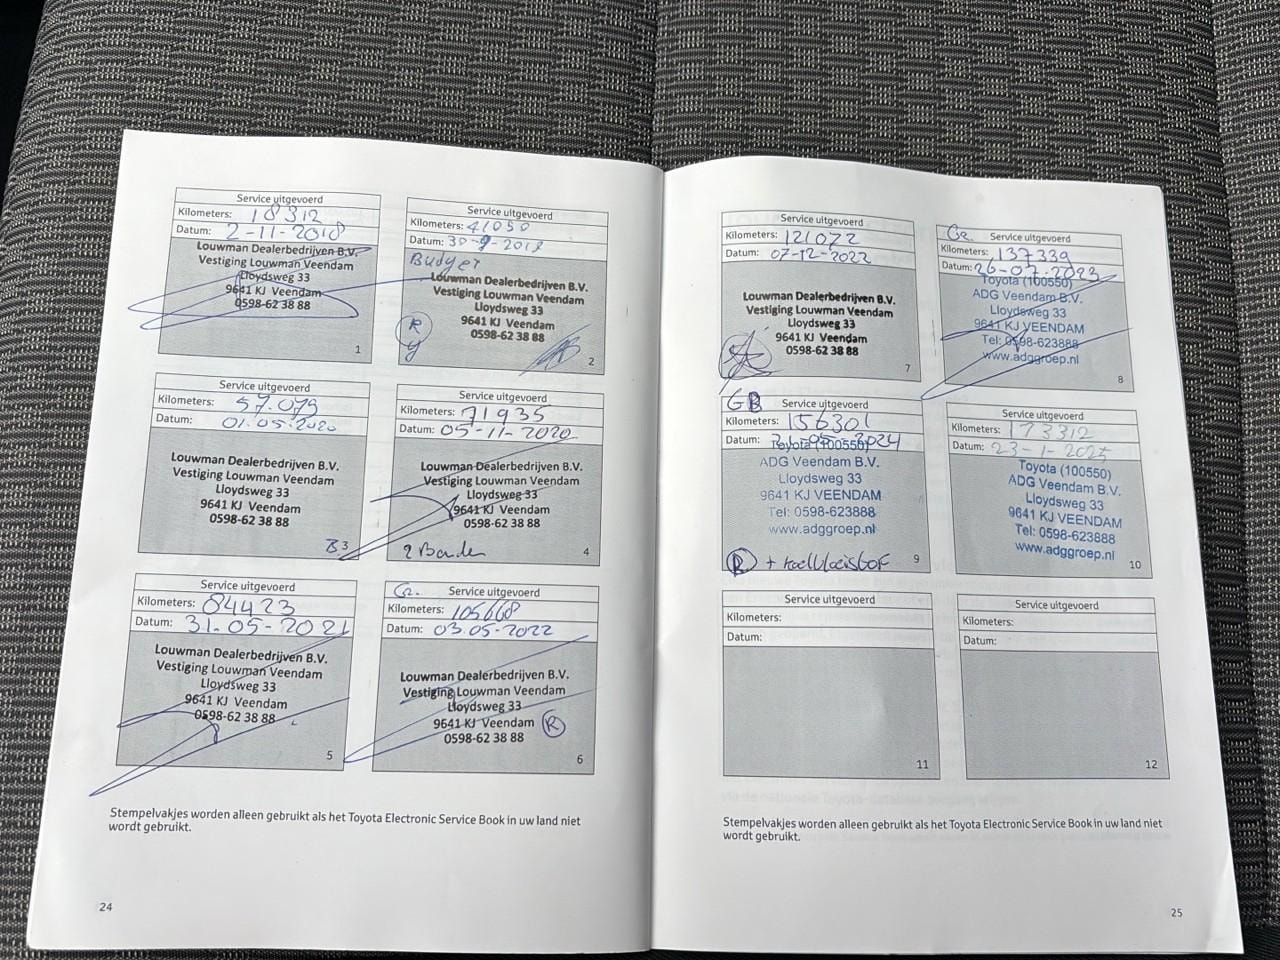 Service uitgevoerd
Kilometers: 18312
Datum: 2-11-2018
Louwman Dealerbedrijven B.V.
Vestiging Louwman Veendam
Lloydsweg 33
9641 KJ Veendam
0598-62 38 88
1
Service uitgevoerd
Kilometers: 41050
Datum: 30-9-2019
Budget
Louwman Dealerbedrijven B.V.
Vestiging Louwman Veendam
Lloydsweg 33
9641 KJ Veendam
0598-62 38 88
R
2
Service uitgevoerd
Kilometers: 57.079
Datum: 01.05.2020
Louwman Dealerbedrijven B.V.
Vestiging Louwman Veendam
Lloydsweg 33
9641 KJ Veendam
0598-62 38 88
B 3
Service uitgevoerd
Kilometers: 71935
Datum: 05-11-2020
Louwman Dealerbedrijven B.V.
Vestiging Louwman Veendam
Lloydsweg 33
9641 KJ Veendam
0598-62 38 88
2 Banden
4
Service uitgevoerd
Kilometers: 84423
Datum: 31.05-2021
Louwman Dealerbedrijven B.V.
Vestiging Louwman Veendam
Lloydsweg 33
9641 KJ Veendam
0598-62 38 88
5
Service uitgevoerd
Kilometers: 105668
Datum: 03.05-2022
Louwman Dealerbedrijven B.V.
Vestiging Louwman Veendam
Lloydsweg 33
9641 KJ Veendam R
0598-62 38 88
6
Stempelvakjes worden alleen gebruikt als het Toyota Electronic Service Book in uw land niet
wordt gebruikt.
24
Service uitgevoerd
Kilometers: 121072
Datum: 07-12-2022
Louwman Dealerbedrijven B.V.
Vestiging Louwman Veendam
Lloydsweg 33
9641 KJ Veendam
0598-62 38 88
7
Service uitgevoerd
Kilometers: 137339
Datum: 26-07-2023
Toyota (100550)
ADG Veendam B.V.
Lloydsweg 33
9641 KJ VEENDAM
Tel: 0598-623888
www.adggroep.nl
8
GB Service uitgevoerd
Kilometers: 156301
Datum:
Toyota (100550)
ADG Veendam B.V.
Lloydsweg 33
9641 KJ VEENDAM
Tel: 0598-623888
www.adggroep.nl
R + koelvloeistof
9
Service uitgevoerd
Kilometers: 173312
Datum: 23-1-2025
Toyota (100550)
ADG Veendam B.V.
Lloydsweg 33
9641 KJ VEENDAM
Tel: 0598-623888
www.adggroep.nl
10
Service uitgevoerd
Kilometers:
Datum:
11
Service uitgevoerd
Kilometers:
Datum:
12
Stempelvakjes worden alleen gebruikt als het Toyota Electronic Service Book in uw land niet
wordt gebruikt.
25